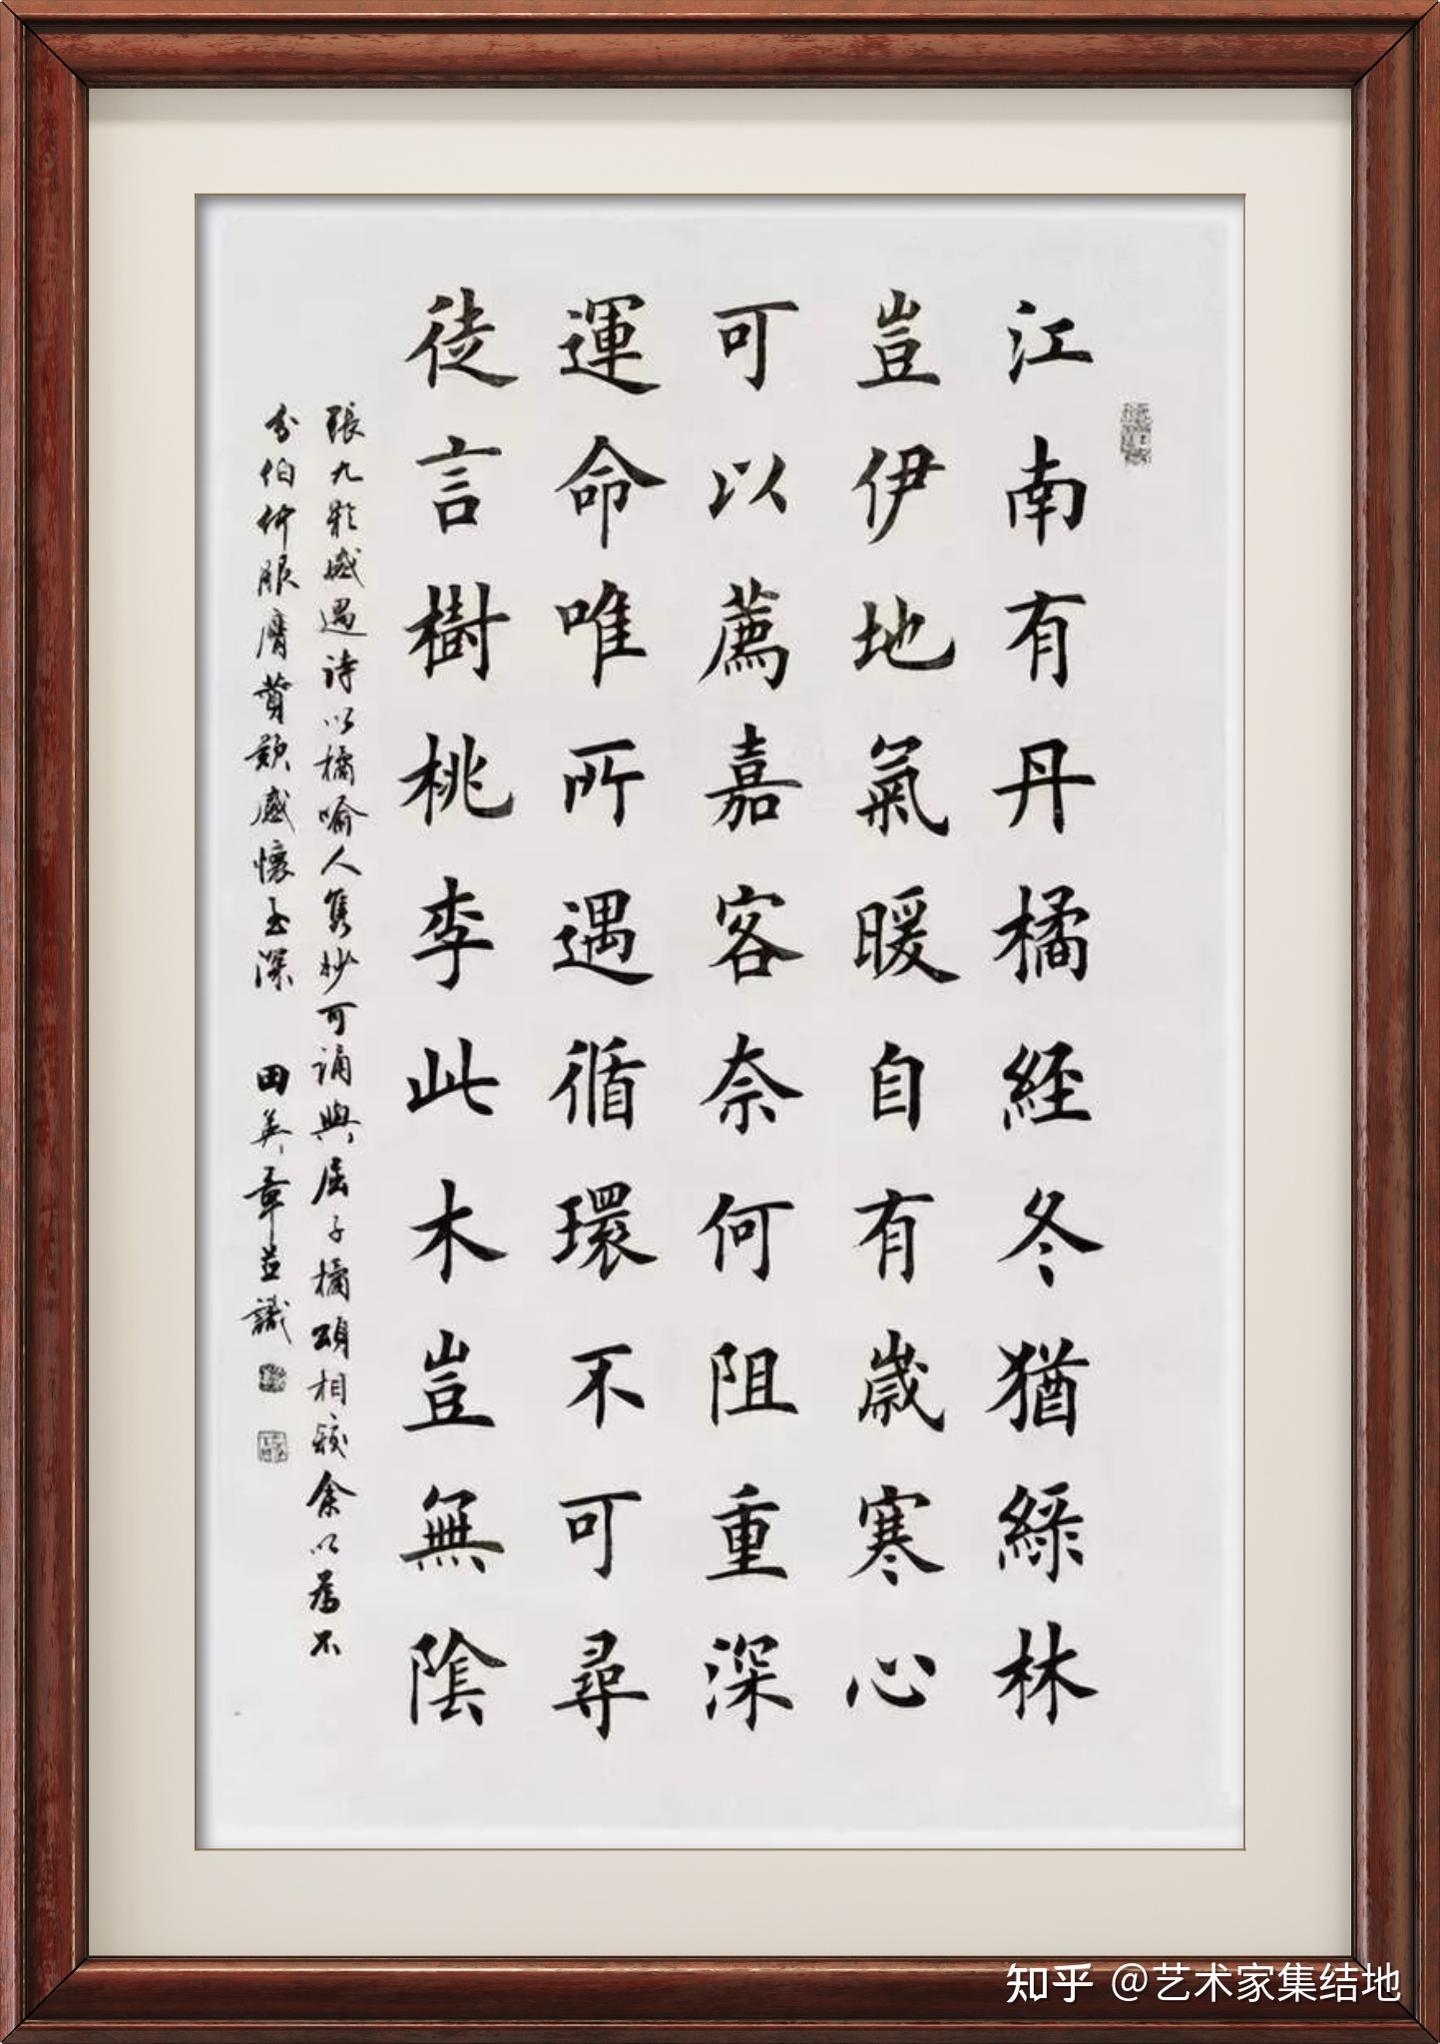 江南有丹橘經冬猶綠林
豈伊地氣暖自有歲寒心
可以薦嘉客奈何阻重深
運命唯所遇循環不可尋
徒言樹桃李此木豈無陰
張九齡感遇诗以橘喻人隽妙可诵與屈子橘頌相較余以為不
分伯仲服膺贊歎感懷至深 田英章並識
知乎 @艺术家集结地